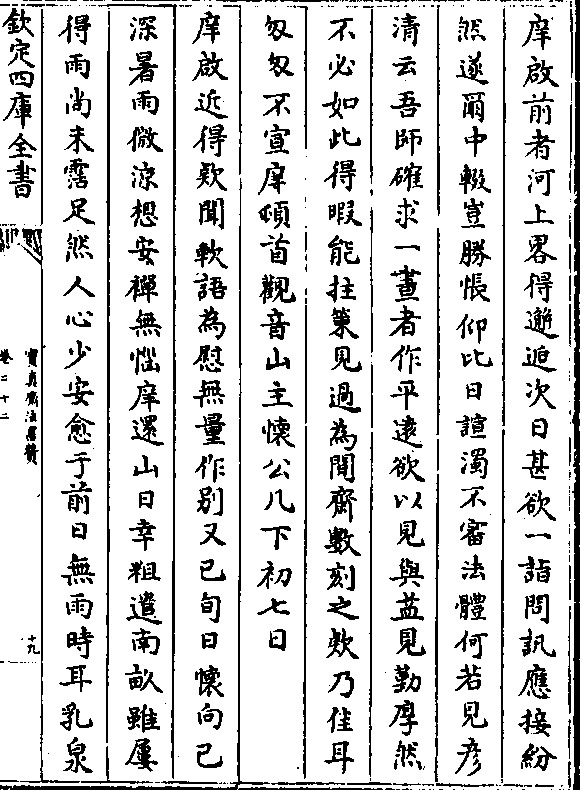 庠啟前者河上畧得邂逅次日甚欲一詣問訊應接紛
然遂爾中輟豈勝悵仰比日諠濁不審法體何若見彦
清云吾師確求一畫者作平遠欲以見與益見勤厚然
不必如此得暇能拄䇿見過為閒齋數刻之欵乃佳耳
匆匆不宣庠頓首觀音山主懷公几下初七日
庠啟近得欵聞軟語為慰無量作别又已旬日懷向已
深暑雨微涼想安禪無惱庠還山日幸粗遣南畝雖屢
得雨尚未霑足然人心少安愈于前日無雨時耳乳泉
欽定四庫全書
寶真齋法書贊
卷二十二
十九